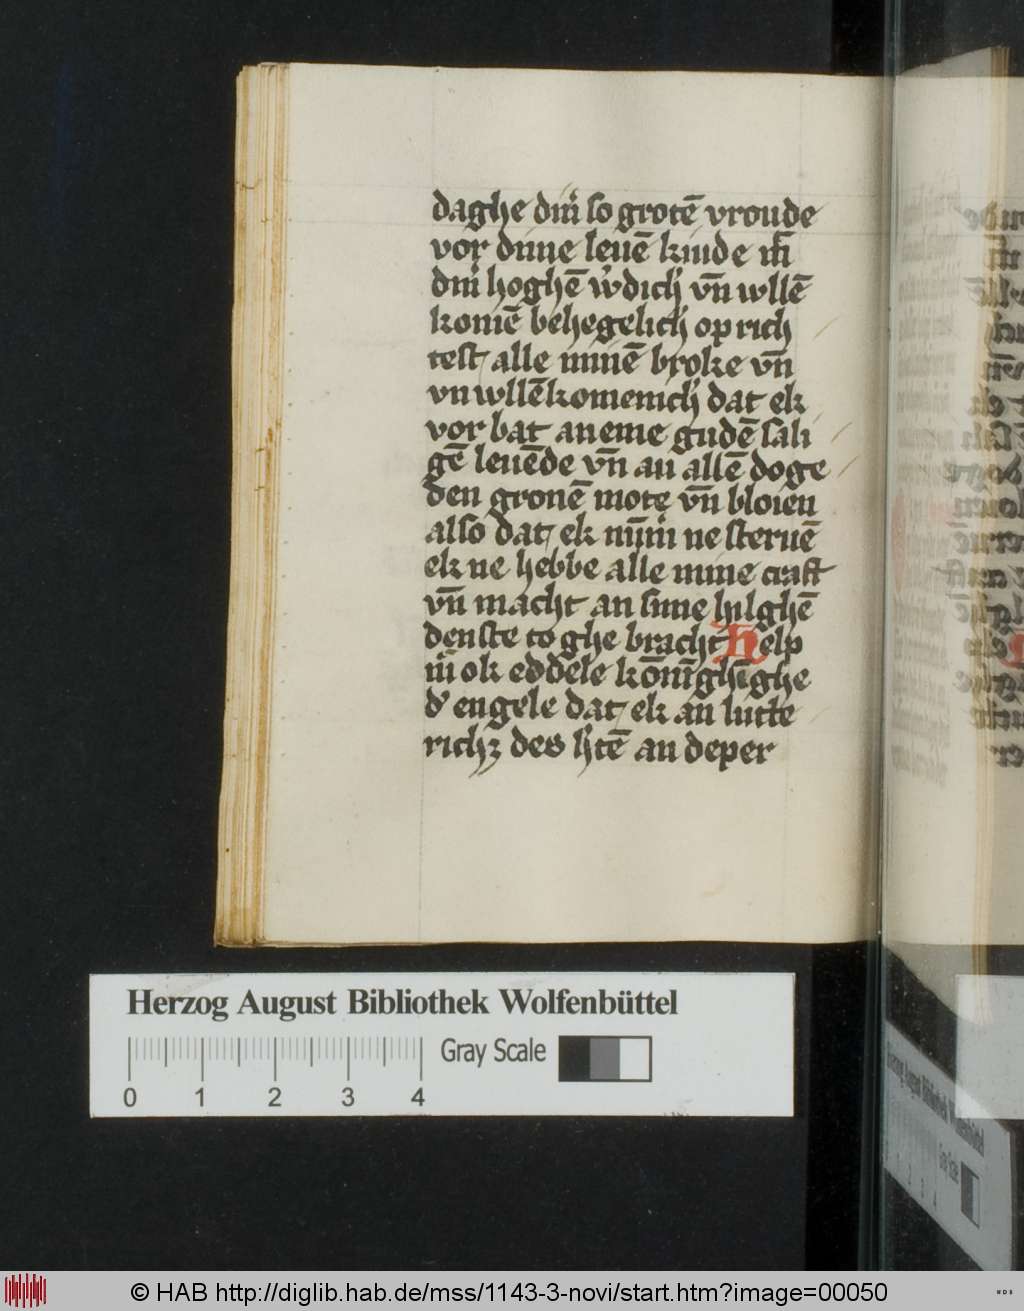 daghe dinͬ so grotē vroude
vor dinne leuē kinde m̄
dinͬ hoghē wͬdich vn̄ wllē
komē behegelich op rich
test alle minē broke vn̄
vn wllēkomenich dat ek
vor bat an eme gudē sali
gē leuēde vn̄ an allē doge
den gronē mote vn̄ bloien
also dat ek nūmͬ ne steruē
ek ne hebbe alle mine craft
vn̄ macht an sinne hilghē
denste to ghe bracht Help
mͬ ok eddele kōnīghīghe
dͬ engele dat ek an lutte
richꝫ des htē an deper
Herzog August Bibliothek Wolfenbüttel
Gray Scale
0 1 2 3 4
© HAB http://diglib.hab.de/mss/1143-3-novi/start.htm?image=00050